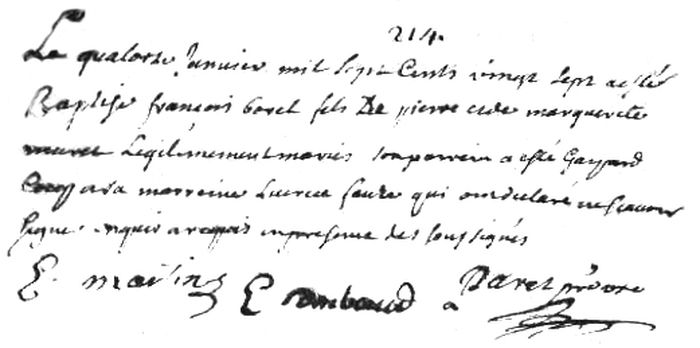 214.
Le quatorze Janvier mil sept Cents vingt sept a esté
Baptisé françois borel fils De pierre et de marguerite
Legitimement mariés son parrein a esté Gaspard
et sa marreine Lucrece faure qui ont declaré ne scavoir
signe enquis et requis en presence des soussignés
E. Martin E Rambaud a Paret prêtre